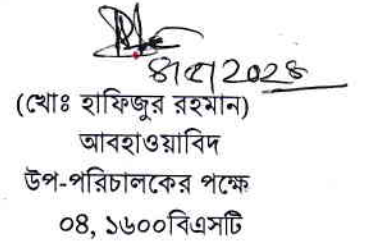 (খোঃ হাফিজুর রহমান)
আবহাওয়াবিদ
উপ-পরিচালকের পক্ষে
০৪, ১৬০০বিএসটি